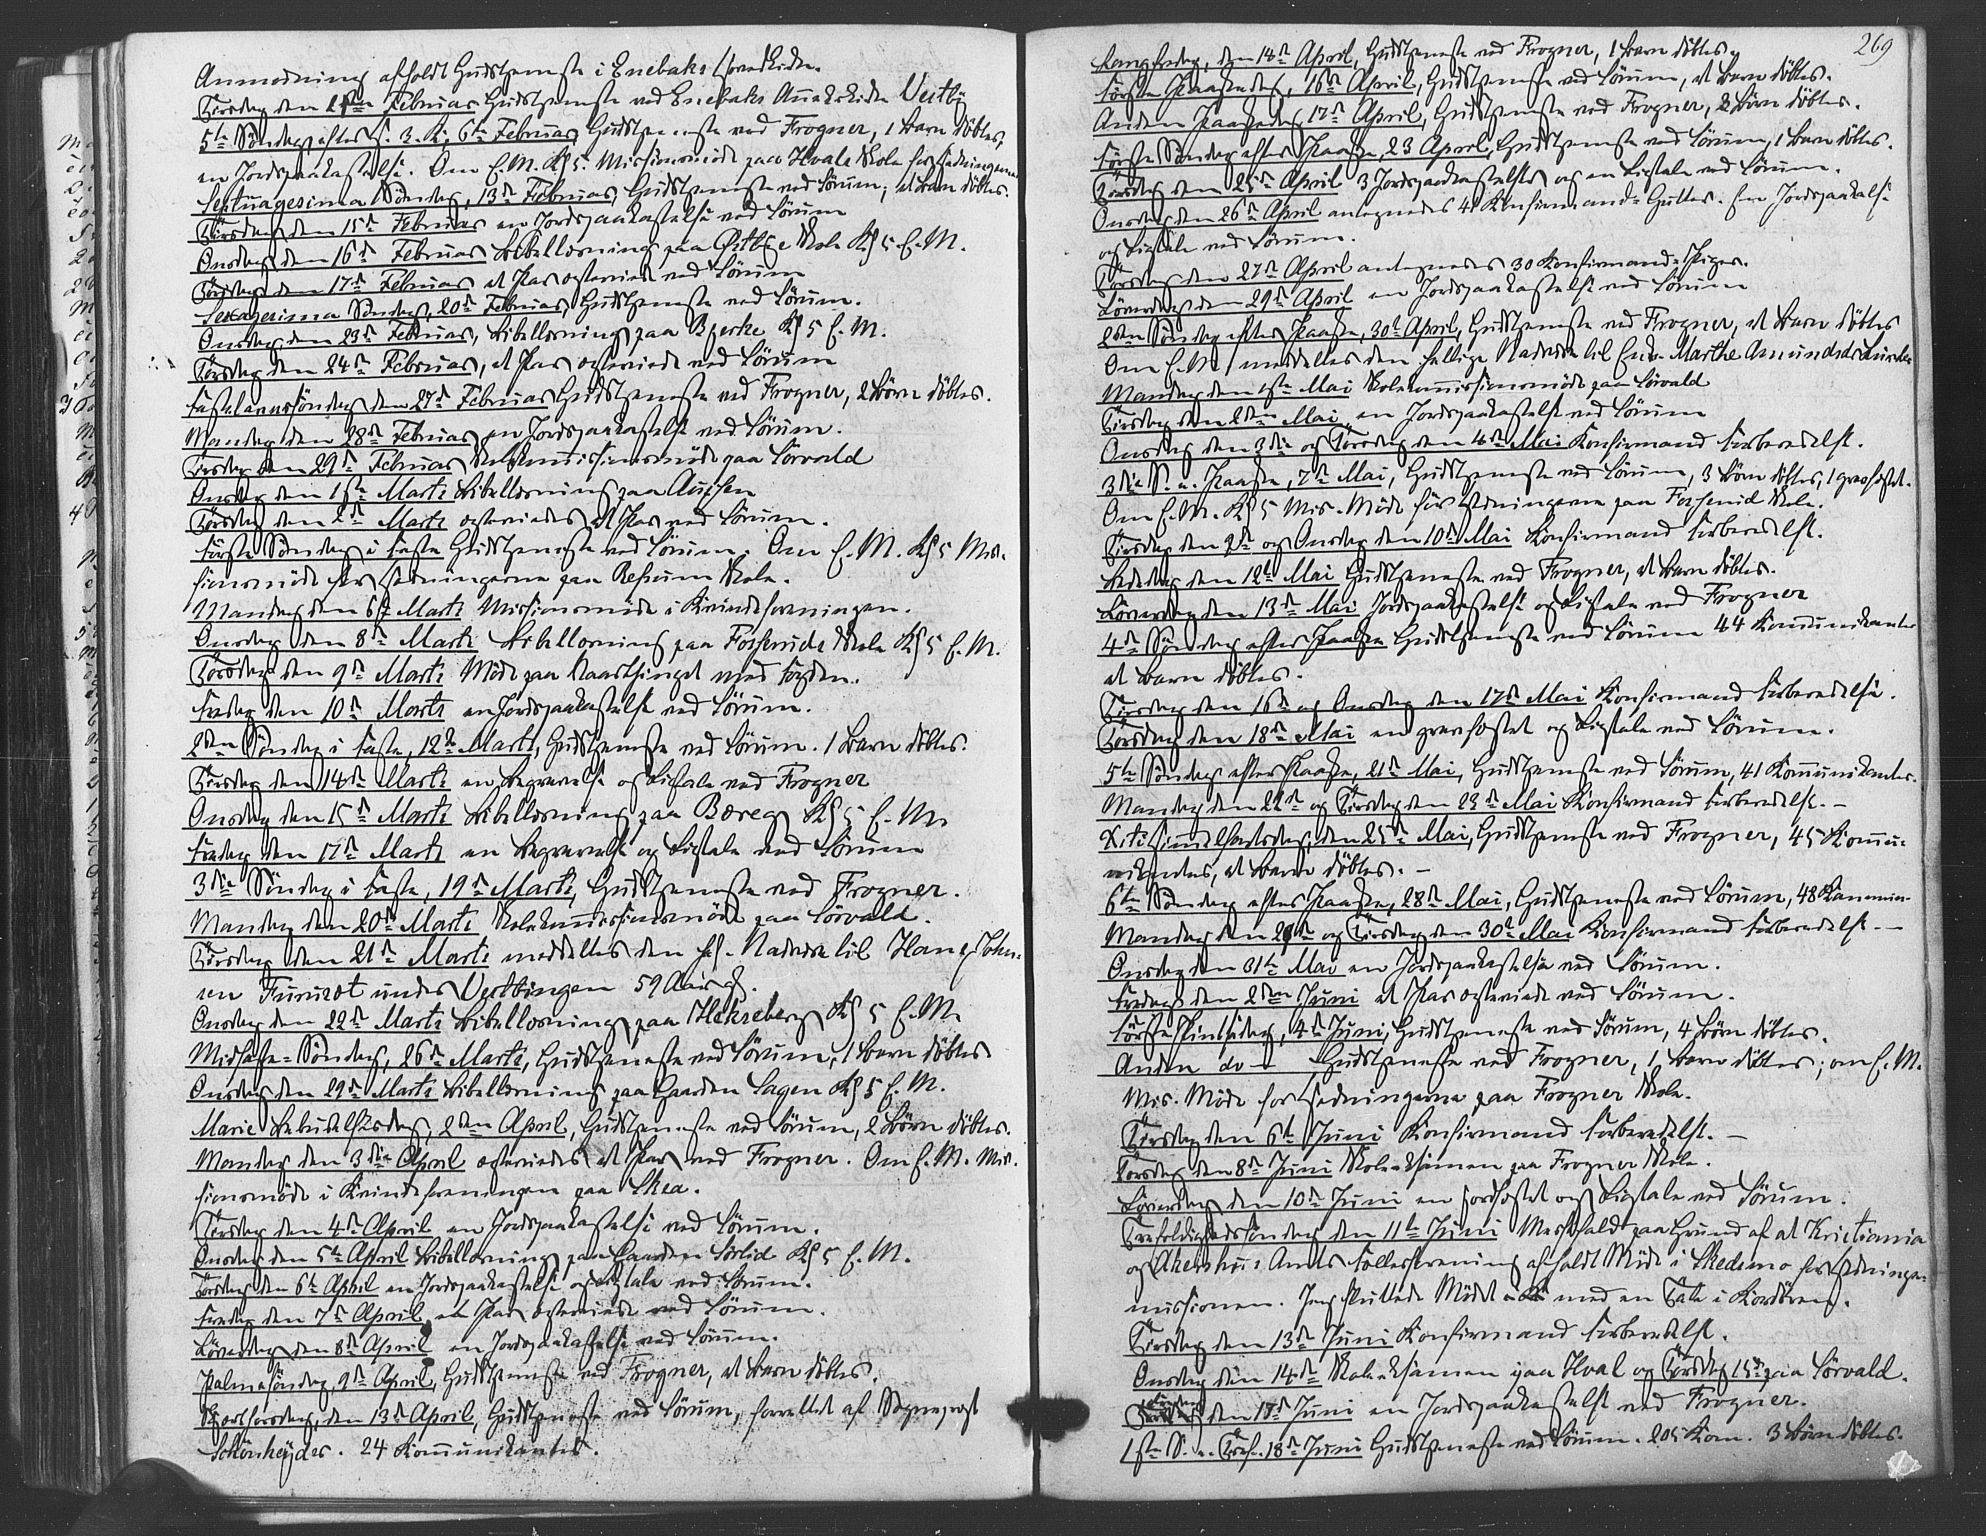 Anmodning afholdt Gudstjeneste i Enebaks Hovedkirke.
Tirsdag den 1ste Februar Gudstjeneste ved Enebaks Annexkirke
5te Söndag efter H. 3. K. 6te Februar Gudstjeneste ved Frogner, 1 Barn döbtes,
en Jordspaakastelse. Om E.M. Kl 5. Missionsmöde paa Hvals Skole for Hedningerne
Septuagesima Söndag, 13de Februar, Gudstjeneste ved Sörum; et Barn döbtes.
Tirsdag den 15de Februar en Jordspaakastelse ved Sörum
Onsdag den 16de Februar Bibellæsning paa Østbye Skole Kl 5 E.M.
Torsdag den 17de Februar et Par ægteviede ved Sörum
Sexagesima Söndag, 20de Februar, Gudstjeneste ved Sörum.
Onsdag den 23de Februar, Bibellæsning paa Bjerke Kl 5 E.M.
Torsdag den 24de Februar, et Par ægteviede ved Sörum
Fastelavnssöndag den 27de Februar Gudstjeneste ved Frogner, 2 Börn döbtes.
Mandag den 28de Februar en Jordspaakastelse ved Sörum.
Tirsdag den 29de Februar Skolekommissionsmöde paa Sörvald
Onsdag den 1ste Marts Bibellæsning paa
Torsdag den 2den Marts ægteviedes et Par ved Sörum.
Förste Söndag i Faste Gudstjeneste ved Sörum. Om E.M. Kl 5 Mis-
sionsmöde for Hedningerne paa Refsum Skole.
Mandag den 6te Marts Missionsmöde i Kvindeforeningen.
Onsdag den 8de Marts Bibellæsning paa Fosserud Skole Kl 5 E.M.
Torsdag den 9de Marts Möde paa Vaarthinget med Fogden.
Fredag den 10de Marts en Jordspaakastelse ved Sörum.
2den Söndag i Faste, 12te Marts, Gudstjeneste ved Sörum. 1 Barn döbtes.
Tirsdag den 14de Marts en Begravelse og Ligtale ved Frogner
Onsdag den 15de Marts Bibellæsning paa Bæreg Kl 5 E.M.
Fredag den 17de Marts en Begravelse og Ligtale ved Sörum
3die Söndag i Faste, 19de Marts, Gudstjeneste ved Frogner.
Mandag den 20de Marts Skolekommissionsmöde paa Sörvald.
Tirsdag den 21de Marts meddeltes den hel. Nadvere til Hans Johan-
sen under Vestbyengen 59 Aar gl.
Onsdag den 22de Marts Bibellæsning paa Hekseberg Kl 5 E.M.
Midfaste-Söndag, 26de Marts, Gudstjeneste ved Sörum, 1 Barn döbtes
Onsdag den 29de Marts Bibellæsning paa Gaarden Sagen Kl 5 E.M.
Marie Bebudelsesdag, 2den April, Gudstjeneste ved Sörum, 2 Börn döbtes.
Mandag den 3die April ægteviedes et Par ved Frogner. Om E.M. Mis-
sionsmöde i Kvindeforeningen paa Skea.
Tirsdag den 4de April en Jordspaakastelse ved Sörum.
Onsdag den 5te April Bibellæsning paa Gaarden Sörlid Kl 5 E.M.
Torsdag den 6te April en Jordspaakastelse og Ligtale ved Sörum.
Fredag den 7de April et Par ægteviede ved Sörum.
Löverdag den 8de April en Jordspaakastelse ved Sörum.
Palmesöndag, 9de April, Gudstjeneste ved Frogner, et Barn döbtes.
Skjærtorsdag, den 13de April, Gudstjeneste ved Sörum, forrettet af Sognepræst
Schönheyder. 24 Kommunikanter.
269
Langfredag, den 14de April, Gudstjeneste ved Frogner, 1 Barn döbtes,
Förste Paaskedag, 16de April, Gudstjeneste ved Sörum, et Barn döbtes.
Anden Paaskedag 17de April, Gudstjeneste ved Frogner, 2 Börn döbtes.
Förste Söndag efter Paaske, 23 April, Gudstjeneste ved Sörum, 1 Barn döbtes.
Tirsdag den 25de April 3 Jordspaakastelser og en Ligtale ved Sörum.
Onsdag den 26de April antegnedes 41 Konfirmand-Gutter. En Jordspaakast.
og Ligtale ved Sörum.
Torsdag den 27de April antegnedes 30 Konfirmand-Piger.
Löverdag den 29de April en Jordspaakastelse ved Sörum
2den Söndag efter Paaske, 30te April, Gudstjeneste ved Frogner, et Barn döbtes
Om E.M. meddeltes den hellige Nadvere til Enke Marthe Amundsdr
Mandag den 1ste Mai Skolekommissionsmöde paa Sörvald
Tirsdag den 2den Mai en Jordspaakastelse ved Sörum
Onsdag den 3die og Torsdag den 4de Mai Konfirmand Forberedelse.
3die S. e. Paaske, 7de Mai, Gudstjeneste ved Sörum, 3 Börn döbtes, 1 gravfæstet.
Om E.M. Kl 5 Mis. Möde for Hedningerne paa Fosserud Skole.
Tirsdag den 9de og Onsdag den 10de Mai Konfirmand Forberedelse.
Bededag den 12te Mai Gudstjeneste ved Frogner, et Barn döbtes.
Löverdag den 13de Mai Jordspaakastelse og Ligtale ved Frogner
4de Söndag efter Paaske Gudstjeneste ved Sörum 44 Kommunikanter
et Barn döbtes.
Tirsdag den 16de og Onsdag den 17de Mai Konfirmand Forberedelse.
Torsdag den 18de Mai en gravfæstet og Ligtale ved Sörum.
5te Söndag efter Paaske, 21de Mai, Gudstjeneste ved Sörum, 41 Kommunikanter.
Mandag den 22de og Tirsdag den 23de Mai Konfirmand Forberedelse. -
Kristi Himmelfartsdag, den 25de Mai, Gudstjeneste ved Frogner, 45 Kommu-
nikanter, et Barn döbtes. -
6te Söndag efter Paaske, 28de Mai, Gudstjeneste ved Sörum, 48 Kommun.
Mandag den 29de og Tirsdag den 30te Mai Konfirmand Forberedelse. -
Onsdag den 31te Mai en Jordspaakastelse ved Sörum.
Fredag den 2den Juni et Par ægteviede ved Sörum.
Förste Pintsedag, 4de Juni, Gudstjeneste ved Sörum, 4 Börn döbtes.
Anden do - Gudstjeneste ved Frogner, 1 Barn döbtes; om E.M.
Mis. Möde for Hedningerne paa Frogner Skole.
Tirsdag den 6te Juni Konfirmand Forberedelse. -
Torsdag den 8de Juni Skoleeksamen paa Frogner Skole.
Löverdag den 10de Juni en jordfæstet og Ligtale ved Sörum.
Trefoldighedssöndag den 11te Juni Messefald paa Grund af at Kristiania
og Akershus Amts Fællesforening afholdt Möde i Skedsmo for Hedninge-
missionen. Jeg sluttede Mödet med en Tale i Kordören.
Tirsdag den 13de Juni Konfirmand Forberedelse.
Onsdag den 14de Skoleeksamen paa Hval og Torsdag 15de paa Sörvald.
Löverdag den 17de Juni en Jordspaakastelse ved Frogner.
1ste S. e. Tref. 18de Juni Gudstjeneste ved Sörum. 205 Kom. 3 Börn döbtes.